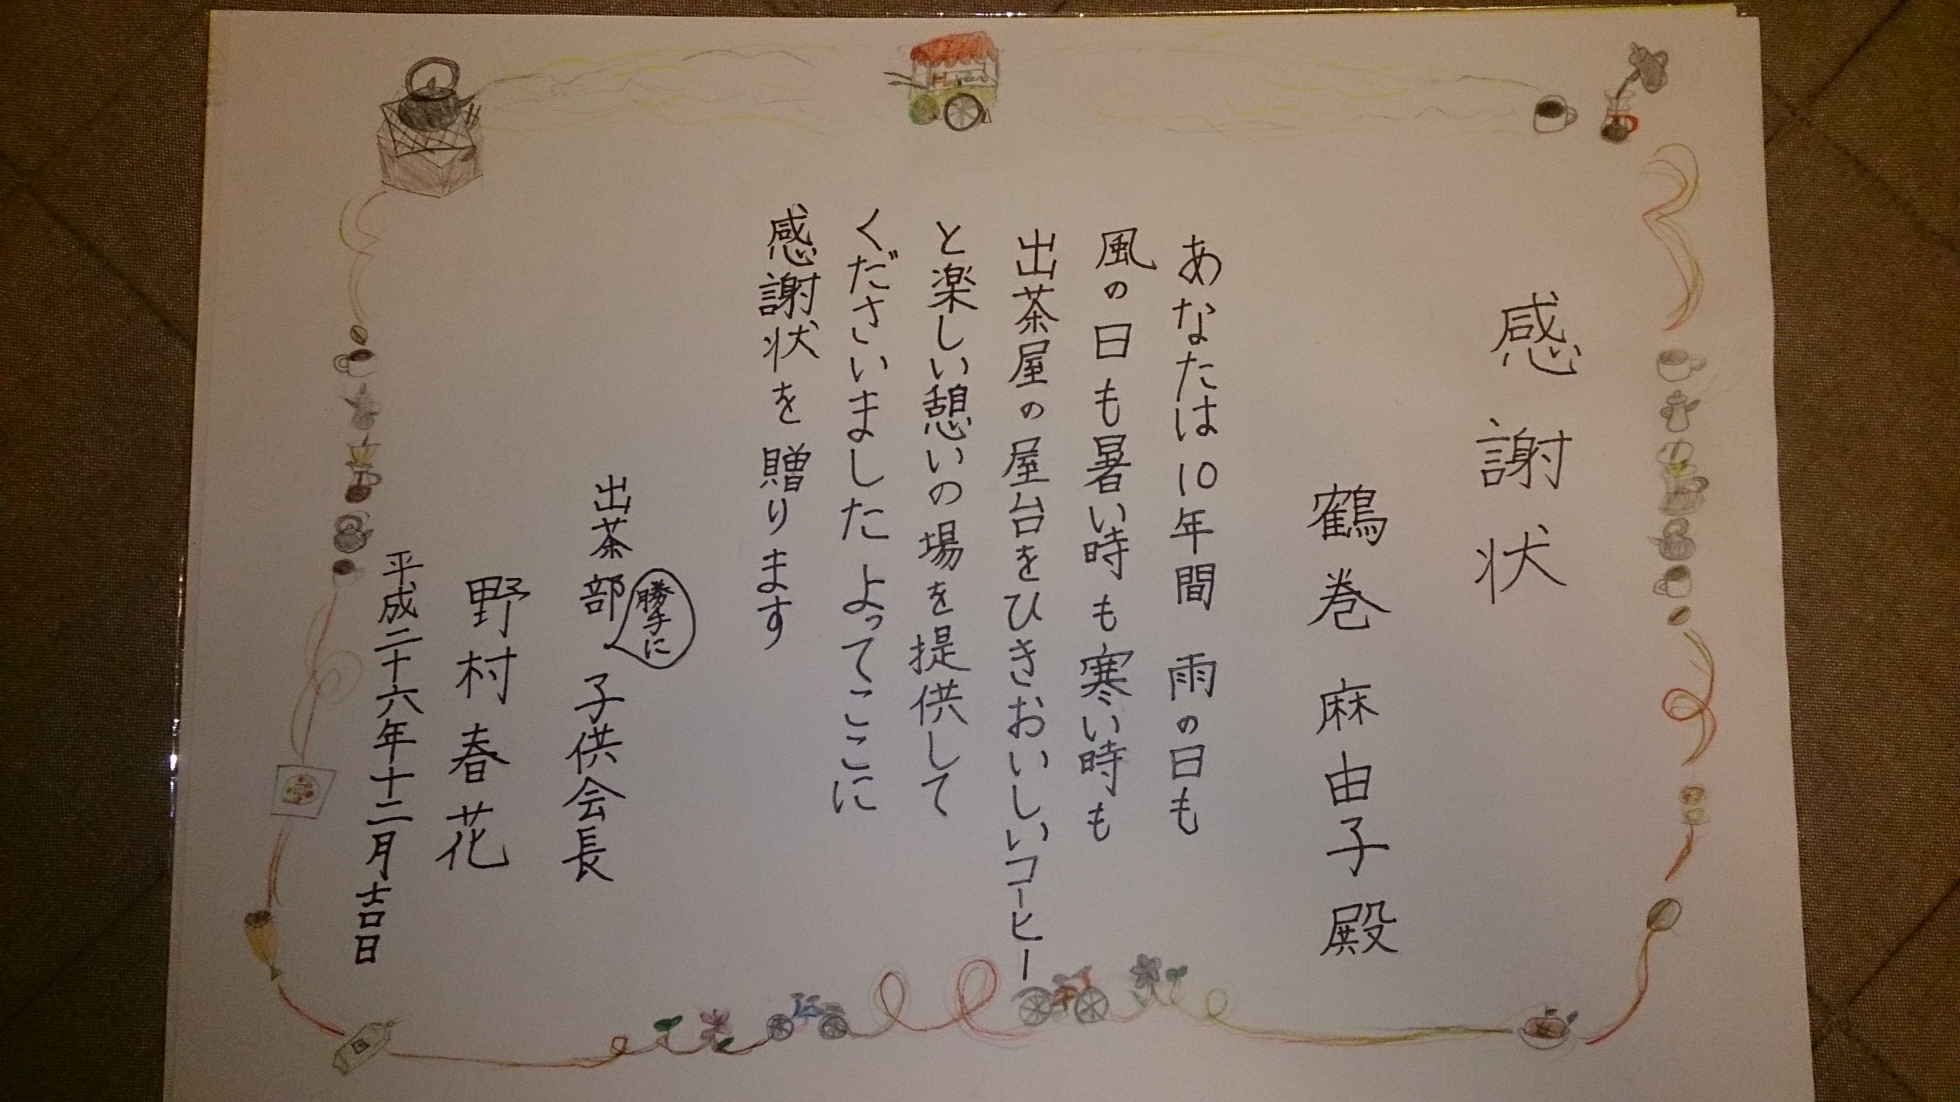 感謝状
鶴巻 麻由子殿
あなたは10年間 雨の日も
風の日も暑い時も寒い時も
出茶屋の屋台をひきおいしいコーヒー
と楽しい憩いの場を提供して
くださいました よってここに
感謝状を贈ります
勝手に
出茶部 子供会長
野村春花
平成二十六年十二月吉日